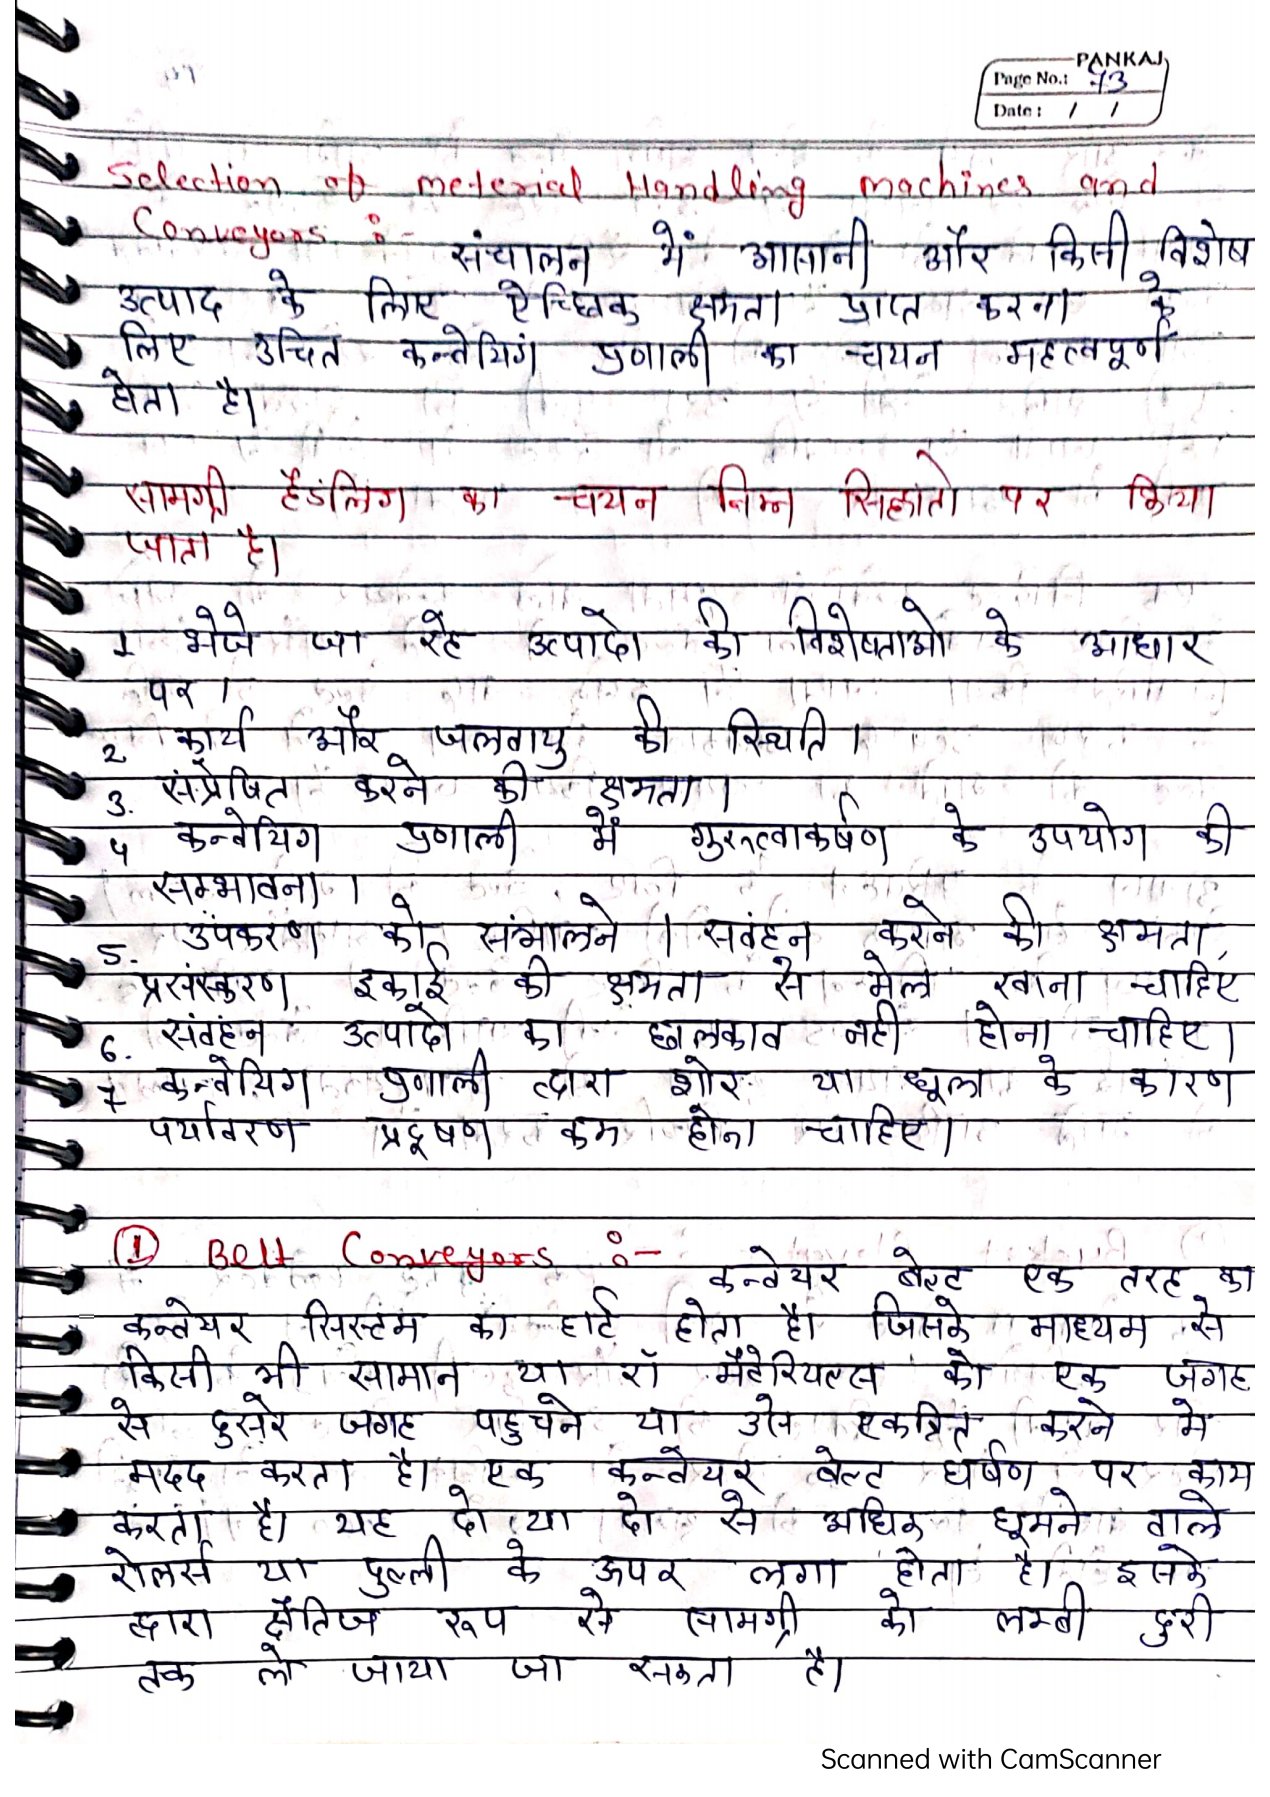 PANKAJ
Page No.: 73
Date : / /
Selection of meterial Handling machines and
Conveyors :-
संचालन में आसानी और किसी विशेष
उत्पाद के लिए ऐच्छिक क्षमता प्राप्त करना के
लिए उचित कन्वेयिगं प्रणाली का चयन महत्वपूर्ण
होता है।
सामग्री हैडंलिंग का चयन निम्न सिद्धातो पर किया
जाता है।
1 भेजे जा रहे उत्पादो की विशेषताओ के आधार
पर ।
2 कार्य और जलवायु की स्थिति ।
3. संप्रेषित करने की क्षमता ।
4 कन्वेयिग प्रणाली में गुरूत्वाकर्षण के उपयोग की
सम्भावना ।
5. उपकरण को संभालने । सवंहन करने की क्षमता,
प्रसंस्करण इकाई की क्षमता से मेल खाना चाहिए
6. संवहन उत्पादो का छलकाव नही होना चाहिए।
7 कन्वेयिग प्रणाली द्वारा शोर या धूल के कारण
पर्यावरण प्रदूषण कम होना चाहिए।
① Belt Conveyors :-
कन्वेयर बेल्ट एक तरह का
कन्वेयर सिस्टम का हार्ट होता है। जिसके माध्यम से
किसी भी सामान या रॉ मैटेरियल्स को एक जगह
से दुसरे जगह पहुचने या उसे एकत्रित करने मे
मदद करता है। एक कन्वेयर बेल्ट घर्षण पर काम
करता है। यह दो या दो से अधिक घूमने वाले
रोलर्स या पुल्ली के ऊपर लगा होता है। इसके
द्वारा क्षैतिज रूप से सामग्री को लम्बी दुरी
तक ले जाया जा सकता है।
Scanned with CamScanner